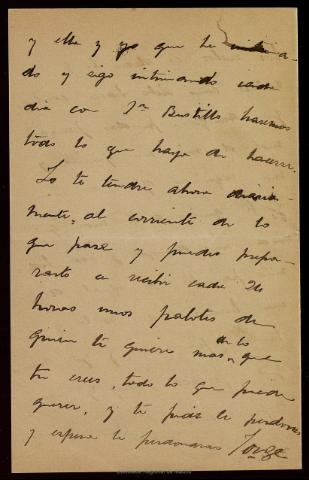 y ella y yo que he intima-
do y sigo intimando cada
dia con Jn Bustillo haremos
todo lo que haya de hacerse.
Yo te tendre ahora diaria-
mente, al corriente de lo
que pase y puedes prepa-
rarte a recibir cada 24
horas unos palotes de
quien te quiere mas de lo que
tu crees, todo lo que puede
querer, y te pide le perdones
y espera le perdonaras Jorge